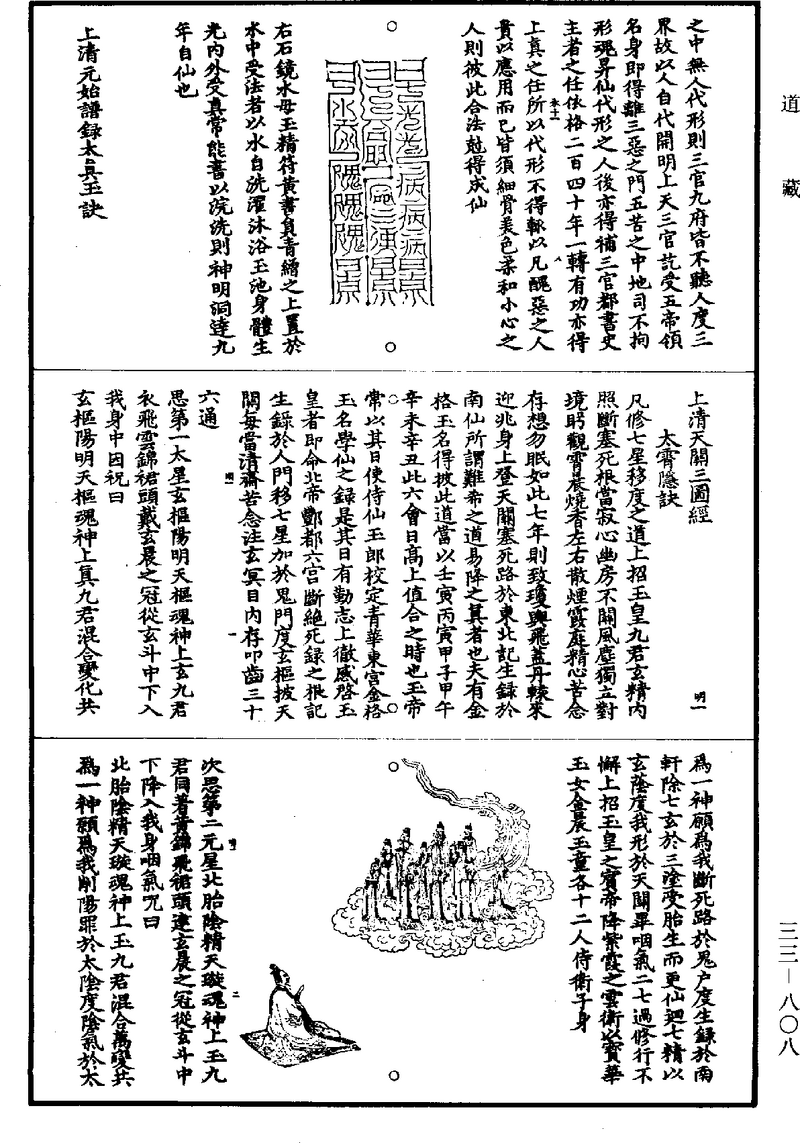 道藏
之中無人代形則三官九府皆不聽人度三
界故以人自代開明上天三官託受五帝領
名身即得離三惡之門五苦之中地司不拘
形魂昇仙代形之人後亦得補三官都書史
主者之任依格二百四十年一轉有功亦得
上真之任所以代形不得輒以凡醜惡之人
貴以應用而已皆須細骨美色柔和小心之
人則彼此合法尅得成仙
右石鏡水母玉精符黃書負青繒之上置於
水中受法者以水自洗濯沐浴玉池身體生
光內外受真常能書以浣洗則神明洞達九
年自仙也
上清元始譜錄太真玉訣
上清天關三圖經
明一
太霄隱訣
凡修七星移度之道上招玉皇九君玄精內
照斷塞死根當寂心幽房不關風塵獨立對
境眄觀霄晨燒香左右散煙霞庭精心苦念
存想勿眠如此七年則致瓊輿飛蓋丹軿來
迎兆身上登天關塞死路於東北記生錄於
南仙所謂難希之道易降之真者也夫有金
格玉名得披此道當以壬寅丙寅甲子甲午
辛未辛丑此六會日高上值合之時也玉帝
常以其日使侍仙玉郎校定青華東宮金格
玉名學仙之錄是其日有勤志上徹感啓玉
皇者即命北帝酆都六宮斷絕死錄之根記
生錄於人門移七星加於鬼門度玄樞披天
關每當清齋苦念注玄冥目內存叩齒三十
六通
思第一太星玄樞陽明天樞魂神上玄九君
衣飛雲錦裙頭戴玄晨之冠從玄斗中下入
我身中因祝曰
玄樞陽明天樞魂神上真九君混合變化共
爲一神願爲我斷死路於鬼戶度生錄於南
軒除七玄於三塗受胎生而更仙迴七精以
玄蔭度我形於天關畢咽氣二七過修行不
懈上招玉皇之賓帝降紫霞之雲衛以寶華
玉女金晨玉童各十二人侍衛子身
次思第二元星北胎陰精天璇魂神上玉九
君同著黃錦飛裙頭建玄晨之冠從玄斗中
下降入我身咽氣呪曰
北胎陰精天璇魂神上玉九君混合萬變共
爲一神願爲我削陽罪於太陰度陰氣於太
三三－八〇八